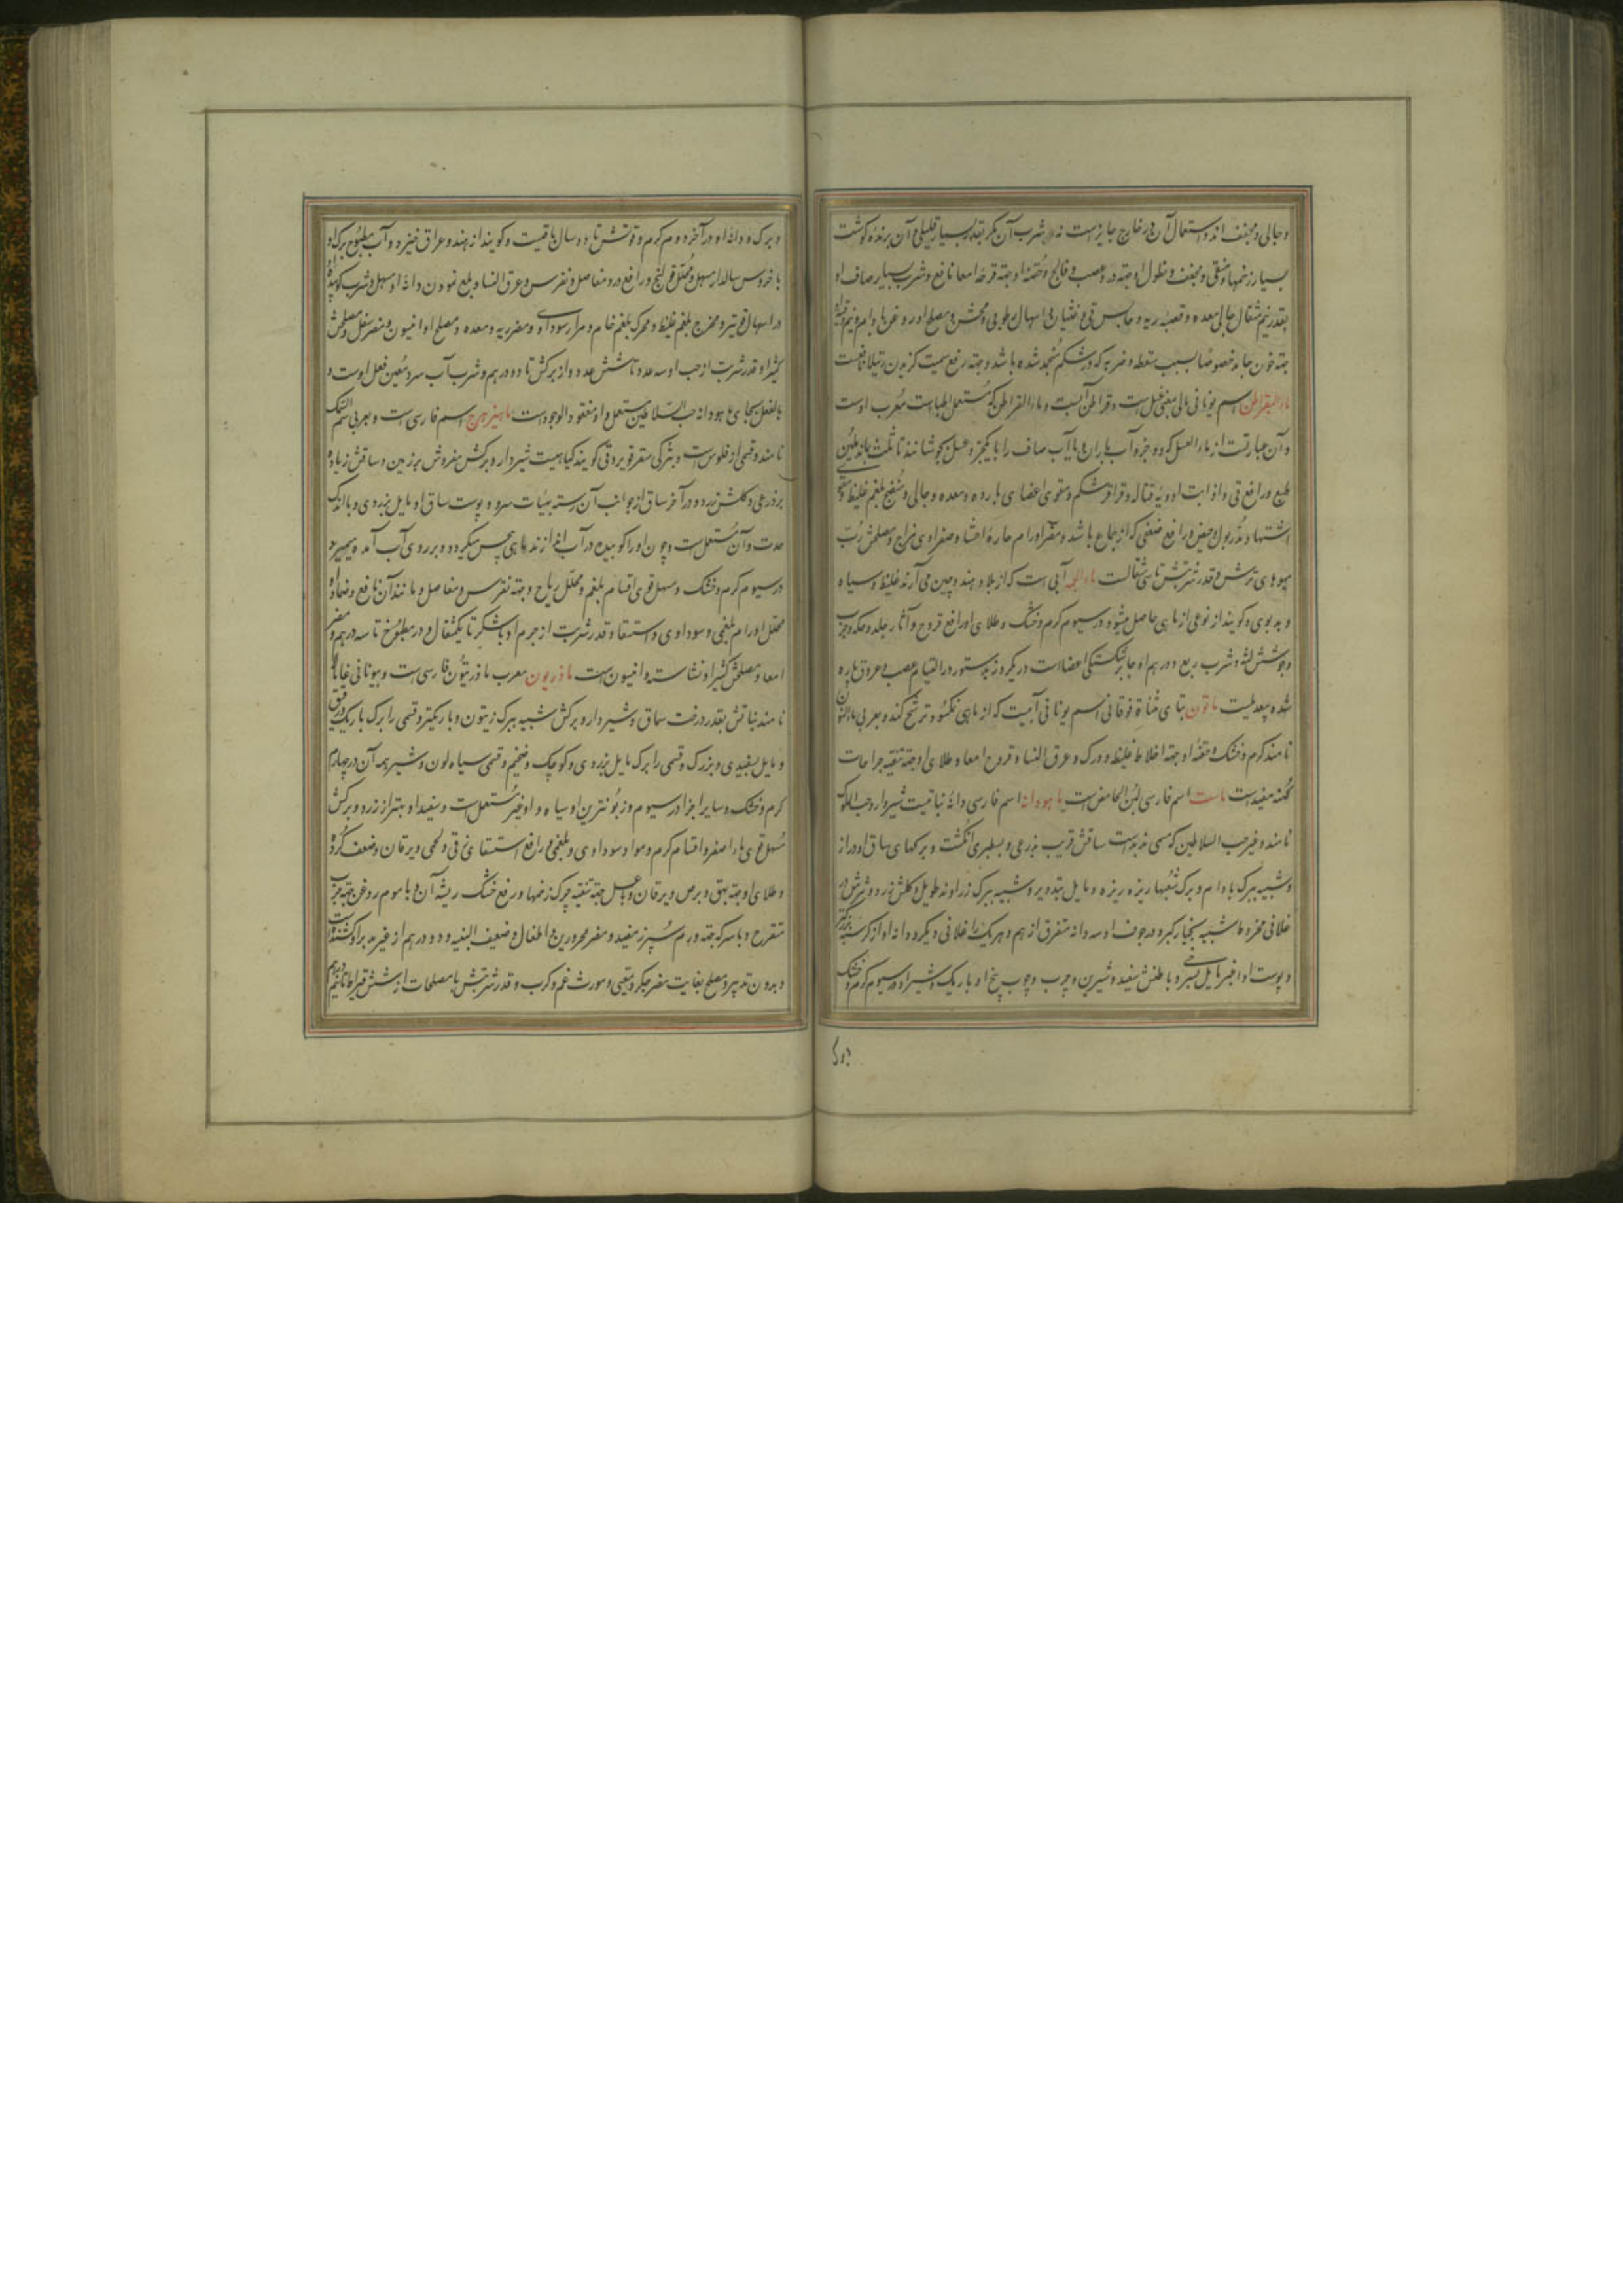 و جالی و مجفف اند و استعمال آن در خارج جایز است نه شرب آن مگر بقدر بسیار قلیلی و آن برنده گوشت
بسیار زخمها و منقی و مجفف و نطول او جهته درد عصب و فالج و حقنه او جهته قرحه امعا نافع و شرب بسیار صاف او
بقدر نیم مثقال جالی معده و قصبه ریه و حابس قی و غثیان و اسهال رطوبی و مصلح او روغن بادام و نیم
جهته خون جامد خصوصا بسبب سقطه و ضربه که در شکم منجمد شده باشد و جهته رفع سمیت گزیدن رتیلا نافعست
ماء القراطن اسم یونانی مالی بمعنی عسل است و قراطن آبست و ماء القراطن که مستعمل اطباست معرب اوست
و آن عبارتست از ماء العسل که دو جزء آب باران و یا آب صاف را با یکجزء عسل بجوشانند تا ثلث بماند ملین
طبع و رافع قی و اذابت ادویه قتاله و قراقر شکم و مقوی اعضای بارده و معده و جالی و منضج بلغم غلیظ
اشتها و مدر بول و حیض و رافع ضعفی که از جماع باشد و مضر اورام حاره احشا و صفراوی مزاج و مصلحش رب
میوهای ترش و قدر شربتش تا سی مثقالست ماء آبی است که از بلاد هند و چین می آرند غلیظ و سیاه
و بد بوی و گویند از نوعی از ماهی حاصل میشود در سیوم گرم و خشک و طلای او رافع قروح و آثار جلد و حکه و جرب
و جوشش لثه و شرب ربع درهم او جابر شکستگی اعضاست در یکروز بدستور در التیام عصب و عروق پاره
شده بیعدیلست ماتون بتای مثناة فوقانی اسم یونانی آبیست که از ماهی نمکسود ترشح کند و بعربی ماء النون
نامند گرم و خشک و حقنه او جهته اخلاط غلیظه و ورک و عرق النسا و قروح امعا و طلای او جهته تنقیه جراحات
کهنه مفید است ماست اسم فارسی لبن الحامض است ماهودانه اسم فارسی دانه نباتیست شیردار و حب الملوک
نامند و غیر حب السلاطین که مسمی به دند است ساقش قریب بذرعی و بسطبری انگشت و برگهای ساق او دراز
و شبیه ببرک بادام و برک شعبها ریزه ریزه و مایل بتدویر و شبیه ببرک زراوند طویل و گلش زرد و ثمرش در
غلافی مخروط شبیه بخیار کبر و در جوف او سه دانه متفرق از هم و هر یک را غلافی دیگر و دانه او از کرسنه بزرگتر
و پوست او اغبر مایل بسرخی و باطنش سفید و شیرین و چرب و چوب بیخ او باریک و شیر او در سیوم گرم و خشک
و برک و دانه او در آخر دوم گرم و قوتش تا دو سال باقیست و گویند از هند و عراق خیزد و آب مطبوخ برک او
با خروس سالدار مسهل و محلل قولنج و رافع درد مفاصل و نقرس و عرق النسا و بلع نمودن دانه او مسهل و شرب کوبیده
در اسهال قویتر و مخرج بلغم غلیظ و محرک بلغم خام و مرار سوداوی و مضر ریه و معده و مصلح او انیسون و مضر سفل و مصلحش
کثیرا و قدر شربت از حب او سه عدد تا شش عدد و از برکش تا دو درهم و شرب آب سرد معین فعل اوست و
بالفعل بجای ماهودانه حب السلاطین مستعمل و او مفقود الوجودست ماهیزهرج اسم فارسی است و بعربی سم السمک
نامند و قسمی از فلوس است و بترکی سقرقویروقی گویند گیاهیست شیردار و برکش مفروش بر زمین و ساقش زیاده
بر ذرعی و گلش زرد و در آخر ساق از جوانب آن رسته بهیأت سرو و پوست ساق او مایل بزردی و با اندک
حدت و آن مستعمل است و چون او را کوبیده در آب اندازند ماهی حس میگردد و بر روی آب آمده میمیرد
در سیوم گرم و خشک و مسهل قوی اقسام بلغم و محلل ریاح و جهته نقرس و مفاصل و مانند آن نافع و ضماد او
محلل اورام بلغمی و سوداوی و استسقا و قدر شربت از جرم او با شکر تا یکمثقال و در مطبوخ تا سه درهم و مضر
امعا و مصلحش کثیرا و نشاسته و انیسون است ماذریون معرب ماذریون فارسی است و بیونانی خامالا
نامند نباتش بقدر درخت سماق و شیردار و برکش شبیه ببرک زیتون و باریکتر و قسمی را برک باریک رقیق
و مایل بسفیدی و بزرک و قسمی را برک مایل بزردی و کوچک و ضخیم و قسمی سیاه لون و شیر همه آن در چهارم
گرم و خشک و سایر اجزا در سیوم و زبونترین او سیاه و او غیر مستعمل است و سفید او بهتر از زرد و برکش
مسهل قوی ماء اصفر و اقسام کرم و مواد سوداوی و بلغمی و رافع استسقای زقی و لحمی و یرقان و ضعف گرده
و طلای او جهته بهق و برص و یرقان و با عسل جهته تنقیه چرک زخمها و رفع خشک ریشه آن و با موم روغن جهته جرب
متقرح و با سرکه جهته ورم سپرز مفید و مضر محرورین و اطفال و ضعیف البنیه و دو درهم از غیر مدبر او کشنده است
و بدون تدبیر و مصلح بغایت مضر جگر و مقیی و مورث غم و کرب و قدر شربتش با مصلحات از شش قیراط تا نیم درهم